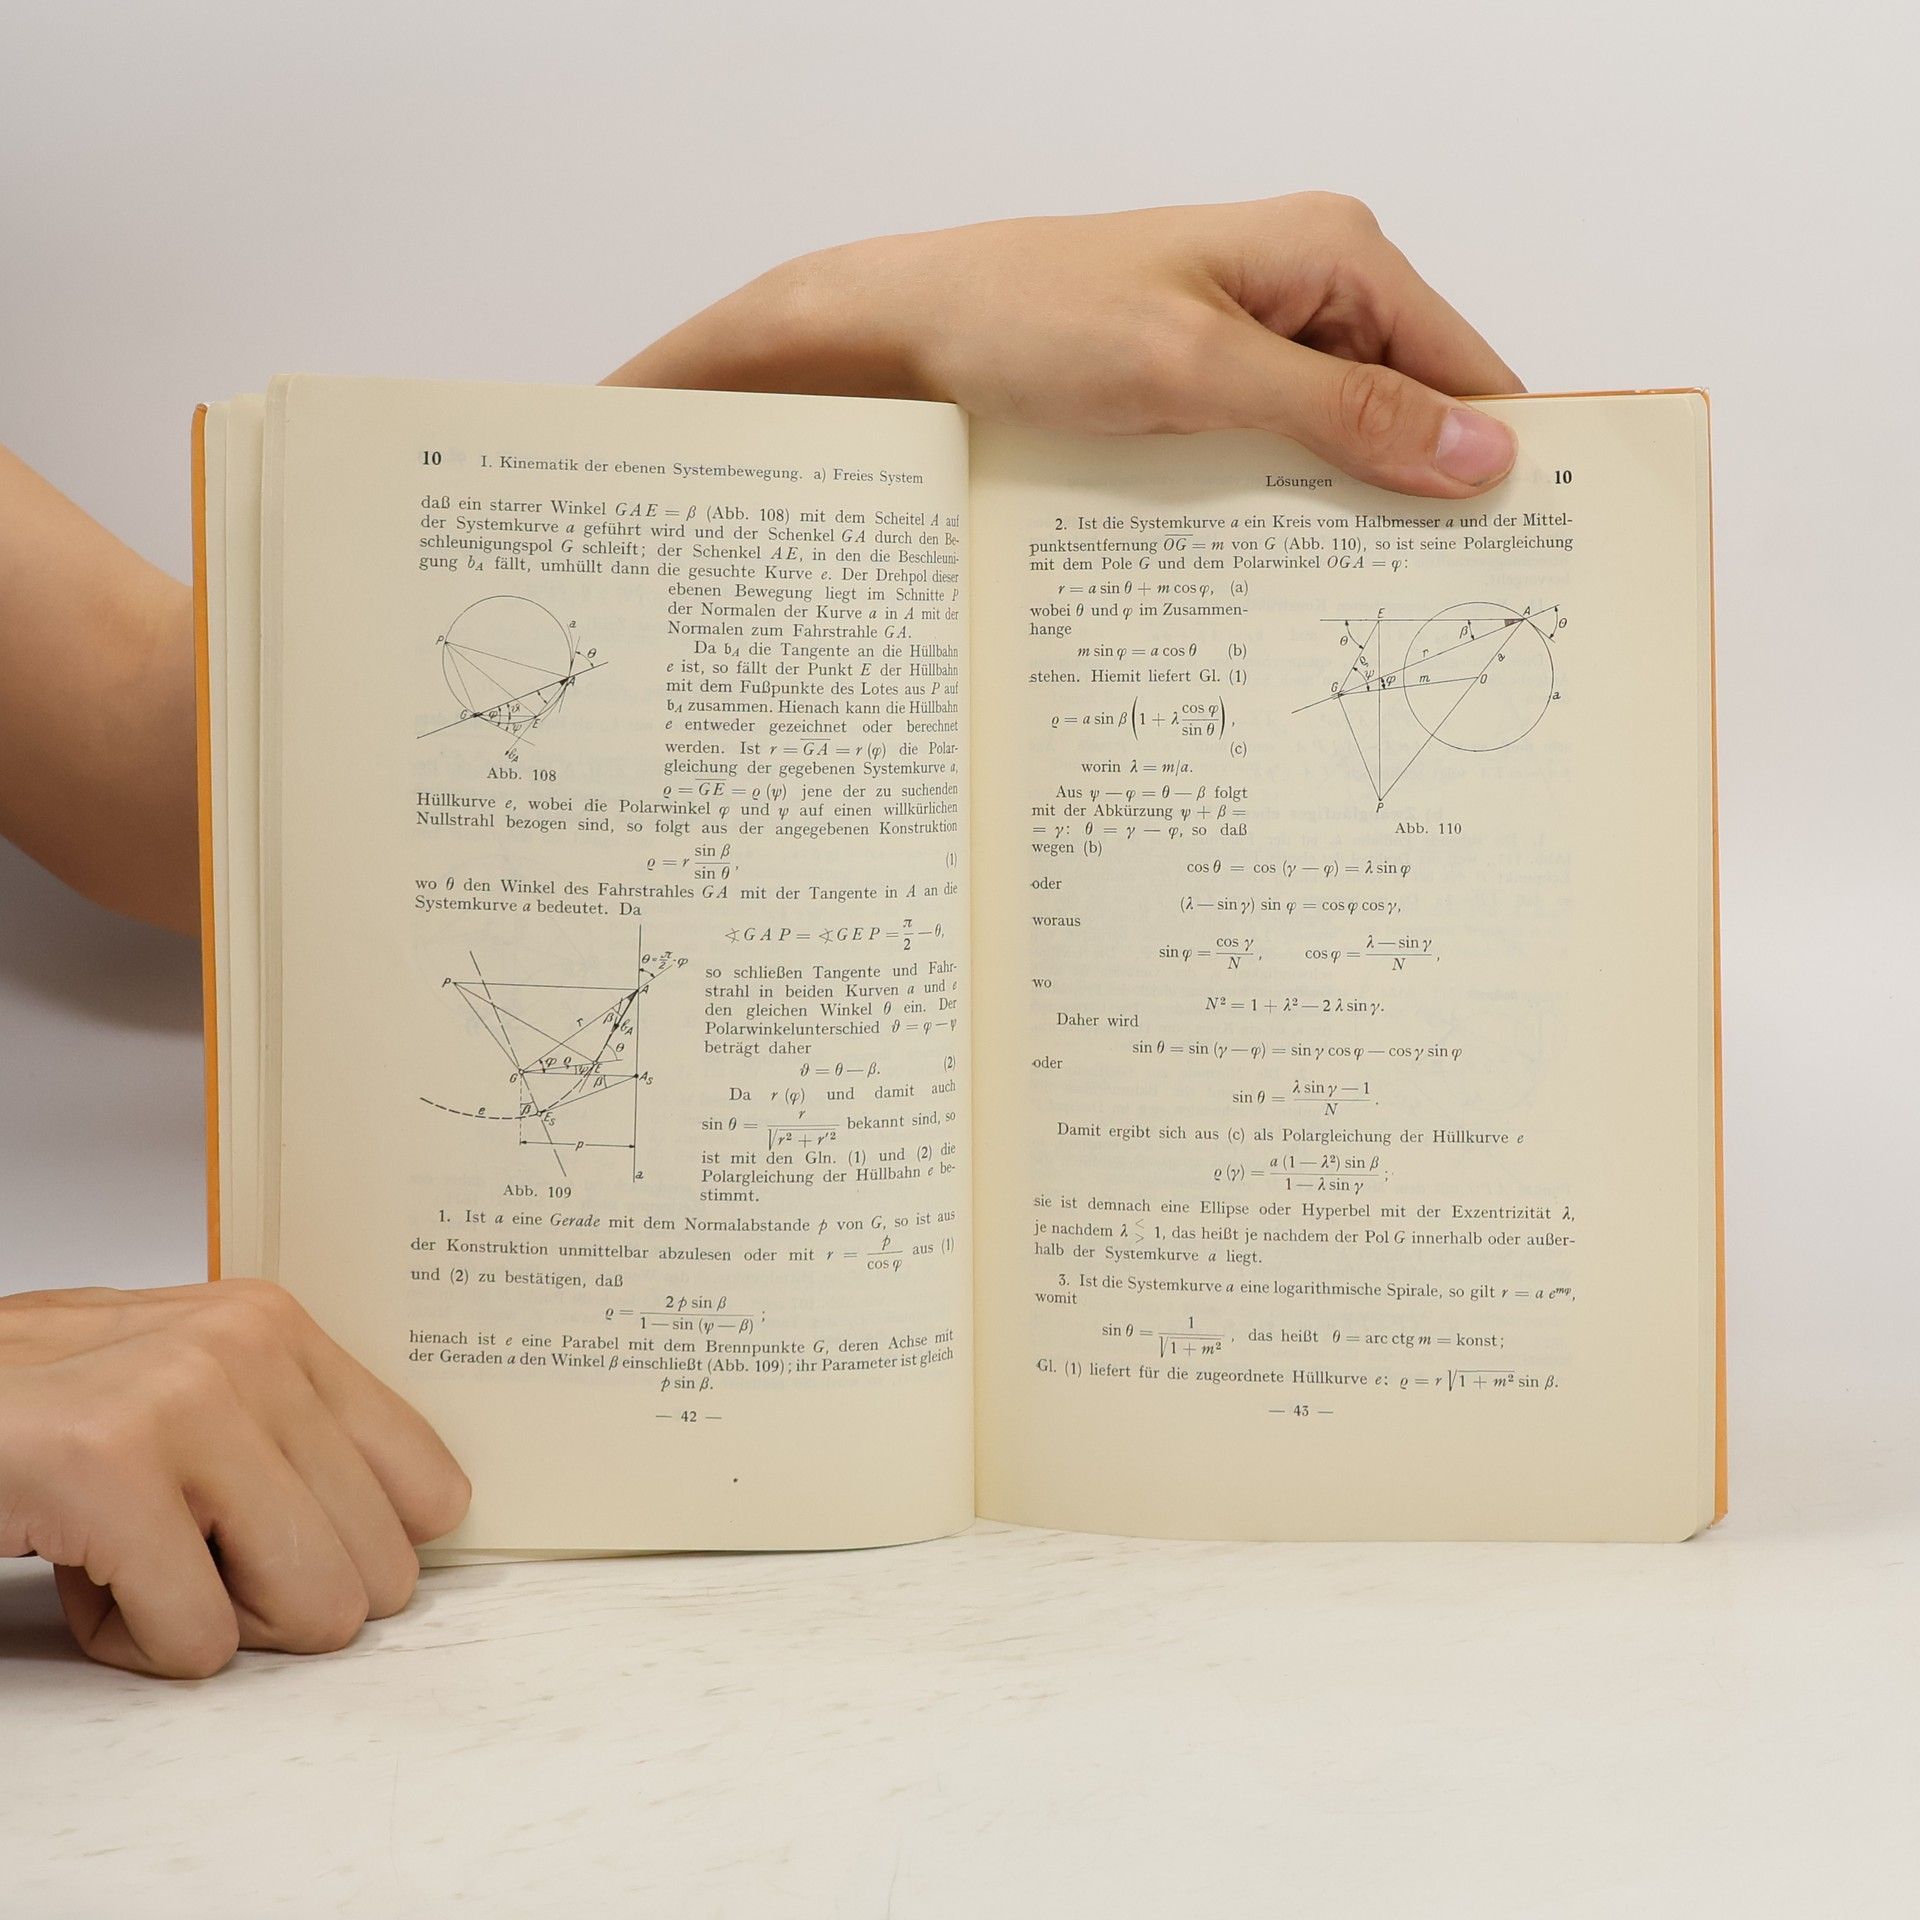 10 I. Kinematik der ebenen Systembewegung. a) Freies System
daß ein starrer Winkel GAE = β (Abb. 108) mit dem Scheitel A auf
der Systemkurve a geführt wird und der Schenkel GA durch den Be-
schleunigungspol G schleift; der Schenkel AE, in den die Beschleuni-
gung b_A fällt, umhüllt dann die gesuchte Kurve e. Der Drehpol dieser
ebenen Bewegung liegt im Schnitte P
der Normalen der Kurve a in A mit der
Normalen zum Fahrstrahle GA.
Da b_A die Tangente an die Hüllbahn
e ist, so fällt der Punkt E der Hüllbahn
mit dem Fußpunkte des Lotes aus P auf
b_A zusammen. Hienach kann die Hüllbahn
e entweder gezeichnet oder berechnet
werden. Ist r = GA = r (φ) die Polar-
gleichung der gegebenen Systemkurve a,
ϱ = GE = ϱ (ψ) jene der zu suchenden
P a θ A G φ ϑ ψ E b_A
Abb. 108
Hüllkurve e, wobei die Polarwinkel φ und ψ auf einen willkürlichen
Nullstrahl bezogen sind, so folgt aus der angegebenen Konstruktion
ϱ = r sin β / sin θ , (1)
wo θ den Winkel des Fahrstrahles GA mit der Tangente in A an die
Systemkurve a bedeutet. Da
∢GAP = ∢GEP = π/2 — θ,
so schließen Tangente und Fahr-
strahl in beiden Kurven a und e
den gleichen Winkel θ ein. Der
Polarwinkelunterschied ϑ = φ — ψ
beträgt daher
ϑ = θ — β. (2)
Da r (φ) und damit auch
sin θ = r / √(r² + r′²) bekannt sind, so
ist mit den Gln. (1) und (2) die
Polargleichung der Hüllbahn e be-
stimmt.
θ = π/2 - φ
P A r β b_A θ φ ϱ ψ E G β A_S
e β E_S
p
a
Abb. 109
1. Ist a eine Gerade mit dem Normalabstande p von G, so ist aus
der Konstruktion unmittelbar abzulesen oder mit r = p / cos φ aus (1)
und (2) zu bestätigen, daß
ϱ = 2 p sin β / 1 — sin (ψ — β) ;
hienach ist e eine Parabel mit dem Brennpunkte G, deren Achse mit
der Geraden a den Winkel β einschließt (Abb. 109); ihr Parameter ist gleich
p sin β.
— 42 —
Lösungen 10
2. Ist die Systemkurve a ein Kreis vom Halbmesser a und der Mittel-
punktsentfernung OG = m von G (Abb. 110), so ist seine Polargleichung
mit dem Pole G und dem Polarwinkel OGA = φ:
r = a sin θ + m cos φ, (a)
wobei θ und φ im Zusammen-
hange
m sin φ = a cos θ (b)
stehen. Hiemit liefert Gl. (1)
ϱ = a sin β (1 + λ cos φ / sin θ) ,
(c)
worin λ = m/a.
Aus ψ — φ = θ — β folgt
mit der Abkürzung ψ + β =
= γ: θ = γ — φ, so daß
wegen (b)
E A θ β θ r a ϱ ψ φ m O G a
P
Abb. 110
cos θ = cos (γ — φ) = λ sin φ
oder
(λ — sin γ) sin φ = cos φ cos γ,
woraus
sin φ = cos γ / N , cos φ = λ — sin γ / N ,
wo
N² = 1 + λ² — 2 λ sin γ.
Daher wird
sin θ = sin (γ — φ) = sin γ cos φ — cos γ sin φ
oder
sin θ = λ sin γ — 1 / N .
Damit ergibt sich aus (c) als Polargleichung der Hüllkurve e
ϱ (γ) = a (1 — λ²) sin β / 1 — λ sin γ ;
sie ist demnach eine Ellipse oder Hyperbel mit der Exzentrizität λ,
je nachdem λ ≶ 1, das heißt je nachdem der Pol G innerhalb oder außer-
halb der Systemkurve a liegt.
3. Ist die Systemkurve a eine logarithmische Spirale, so gilt r = a e^mφ,
womit
sin θ = 1 / √(1 + m²) , das heißt θ = arc ctg m = konst;
Gl. (1) liefert für die zugeordnete Hüllkurve e: ϱ = r √(1 + m²) sin β.
— 43 —